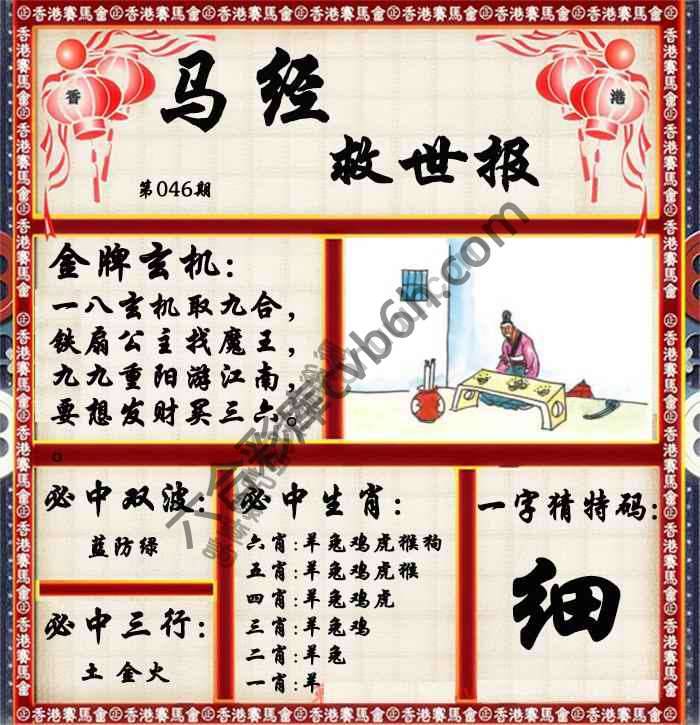 正香港賽馬會正香港賽馬會正香港賽馬會正香港賽馬會正香港賽馬會正香港賽馬會
香
港
马经
救世报
第046期
金牌玄机:
一八玄机取九合,
铁扇公主找魔王,
九九重阳游江南,
要想发财买三六。
。
六合彩库cvb6h.com
必中双波:
蓝防绿
必中三行:
土金火
必中生肖:
六肖:羊兔鸡虎猴狗
五肖:羊兔鸡虎猴
四肖:羊兔鸡虎
三肖:羊兔鸡
二肖:羊兔
一肖:羊
一字猜特码:
细